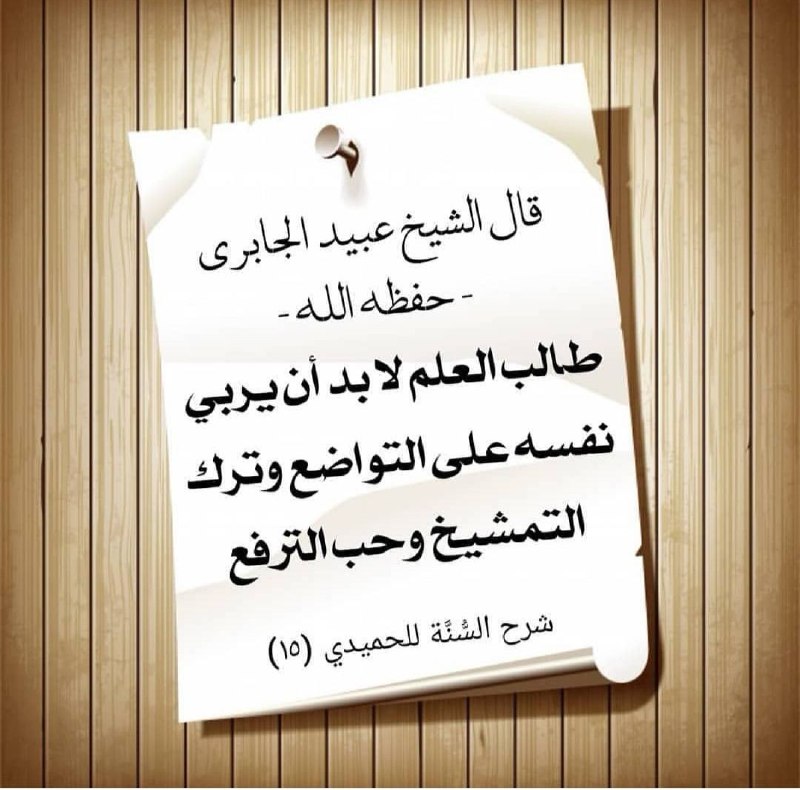 قال الشيخ عبيد الجابرى
- حفظه الله -
طالب العلم لابد أن يربي
نفسه على التواضع وترك
التمشيخ وحب الترفع
شرح السُّنَّة للحميدي (١٥)